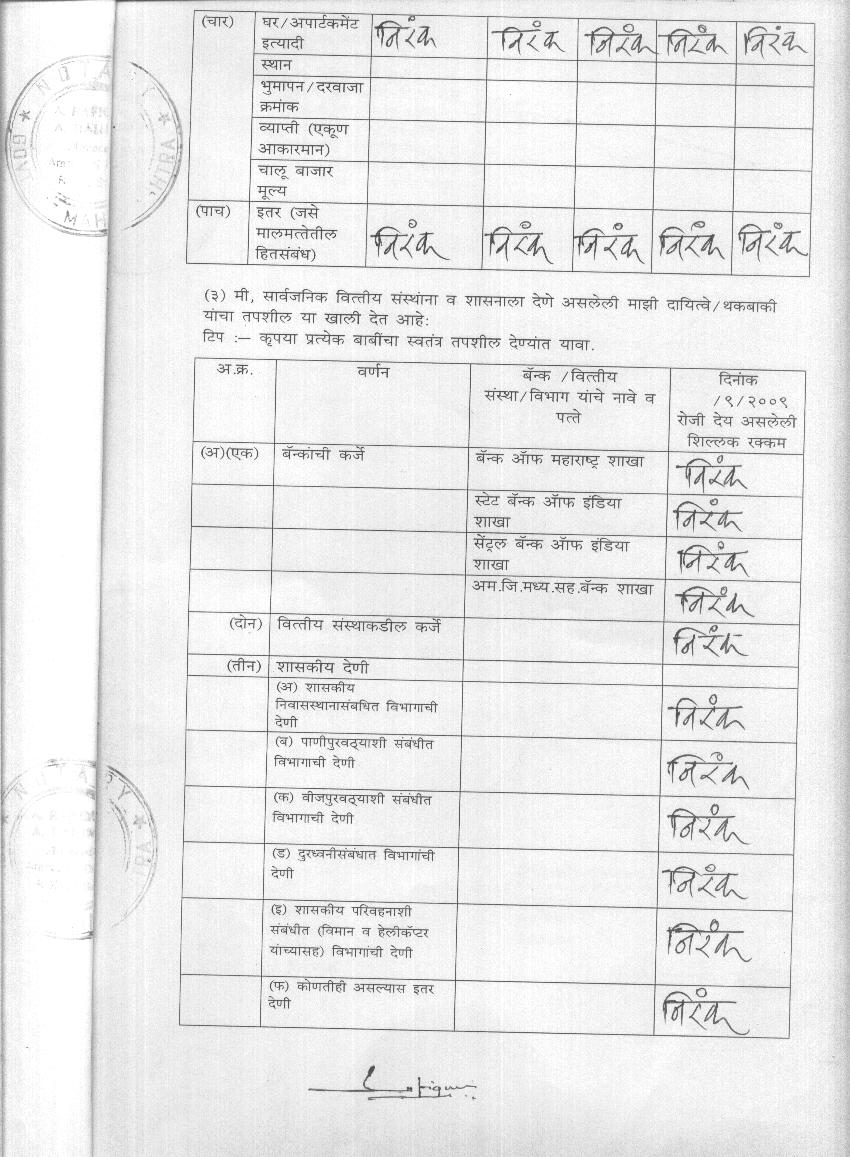 (चार) घर/अपार्टकमेंट निरंक निरंक निरंक निरंक निरंक
इत्यादी
स्थान
भुमापन/दरवाजा
क्रमांक
व्याप्ती (एकूण
आकारमान)
चालू बाजार
मूल्य
(पाच) इतर (जसे
मालमत्तेतील निरंक निरंक निरंक निरंक निरंक
हितसंबंध)
(३) मी, सार्वजनिक वित्तीय संस्थांना व शासनाला देणे असलेली माझी दायित्वे/थकबाकी
यांचा तपशील या खाली देत आहे:
टिप :– कृपया प्रत्येक बाबींचा स्वतंत्र तपशील देण्यांत यावा.
अ.क्र. वर्णन बॅन्क /वित्तीय दिनांक
संस्था/विभाग यांचे नावे व /९/२००९
पत्ते रोजी देय असलेली
शिल्लक रक्कम
(अ)(एक) बॅन्कांची कर्जे बॅन्क ऑफ महाराष्ट्र शाखा निरंक
स्टेट बॅन्क ऑफ इंडिया निरंक
शाखा
सेंट्रल बॅन्क ऑफ इंडिया निरंक
शाखा
अम.जि.मध्य.सह.बॅन्क शाखा निरंक
(दोन) वित्तीय संस्थाकडील कर्जे निरंक
(तीन) शासकीय देणी
(अ) शासकीय
निवासस्थानासंबधित विभागाची निरंक
देणी
(ब) पाणीपुरवठ्याशी संबंधीत निरंक
विभागाची देणी
(क) वीजपुरवठ्याशी संबंधीत निरंक
विभागाची देणी
(ड) दुरध्वनीसंबंधात विभागांची निरंक
देणी
(इ) शासकीय परिवहनाशी
संबंधीत (विमान व हेलीकॅप्टर निरंक
यांच्यासह) विभागांची देणी
(फ) कोणतीही असल्यास इतर निरंक
देणी
NOTARY
GOV
MAH
NOTARY